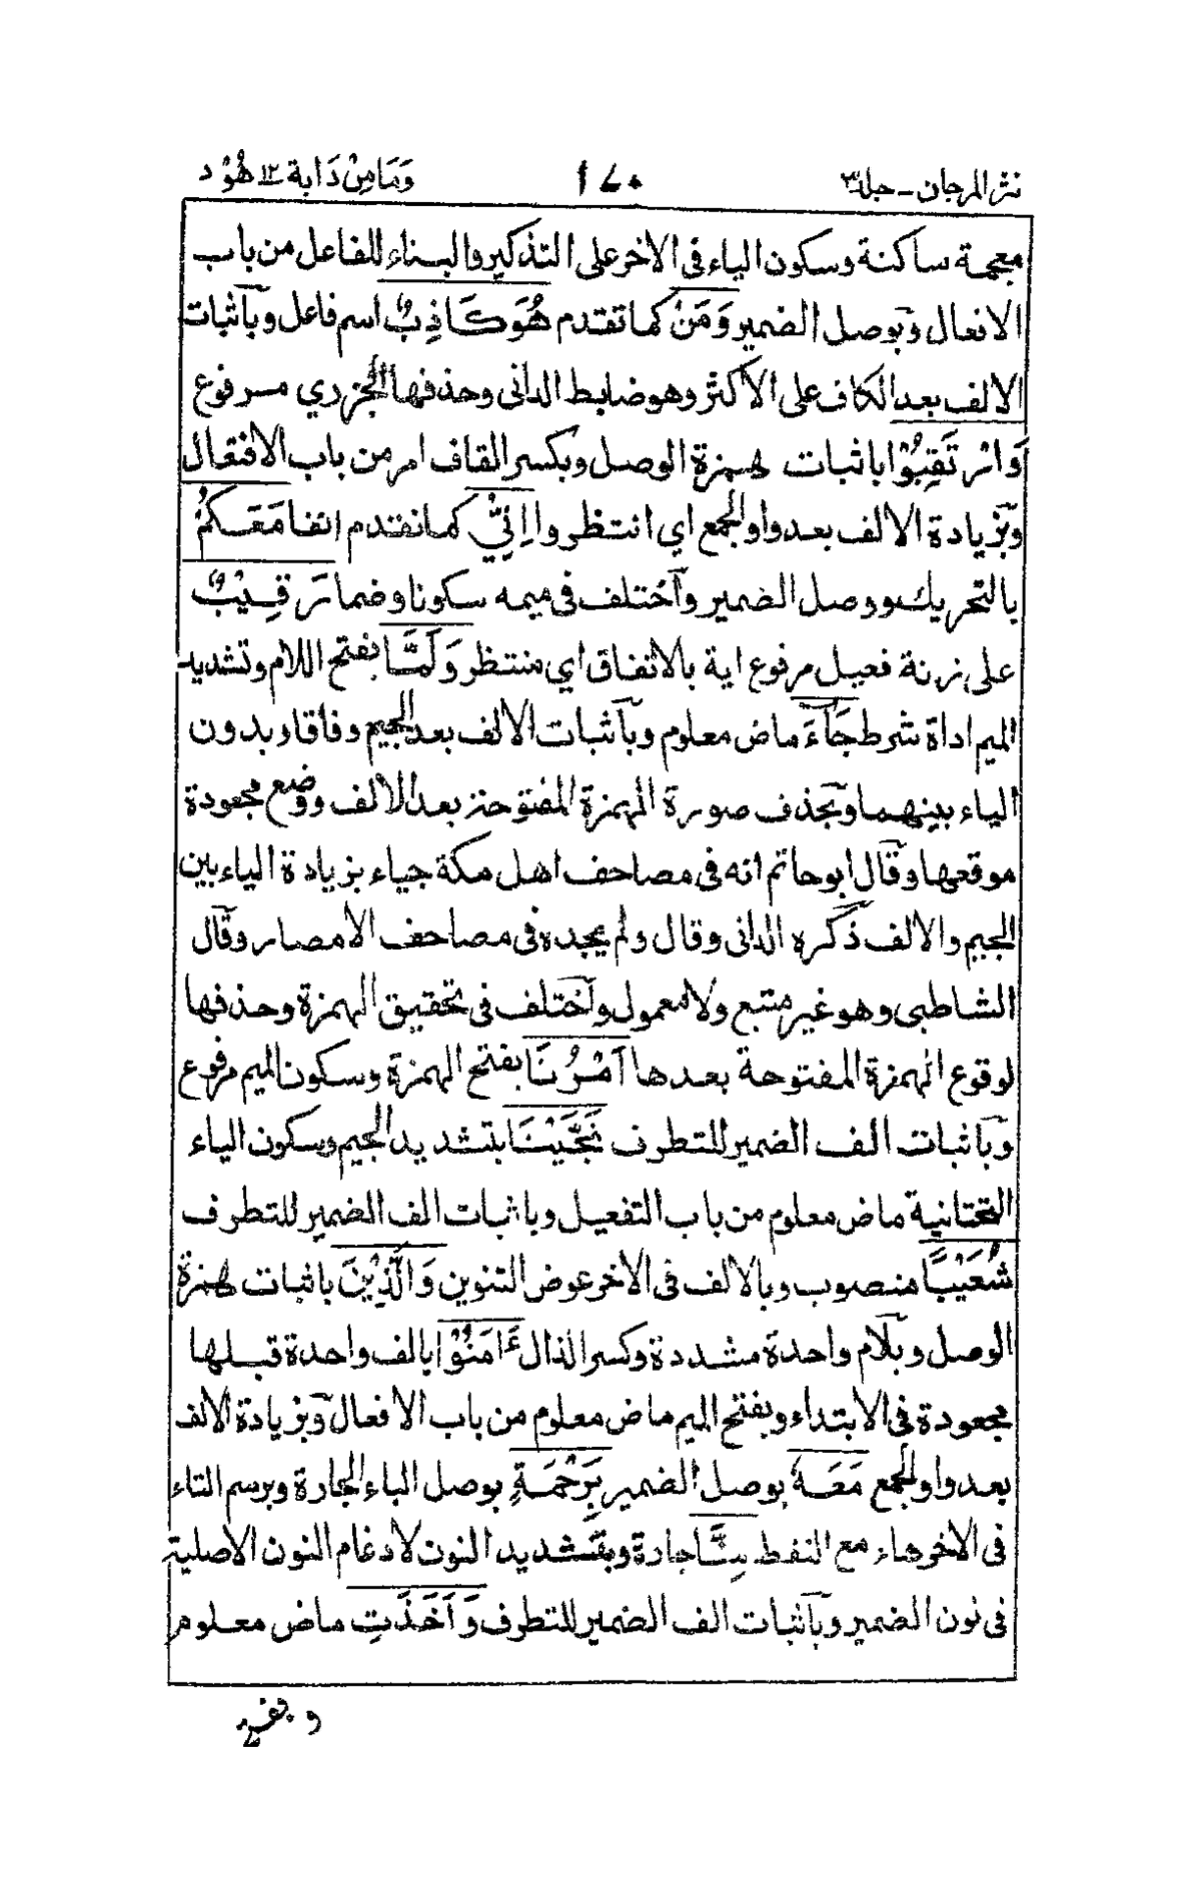 نثر المرجان – جلد ٣ ١٧٠ وَمَا مِنْ دَابة ١٢ هُوْد
معجمة ساكنة وسكون الياء فى الاخر على التذكير والبناء للفاعل من باب
الافعال وبوصل الضمير وَمَنْ كما تقدم هُوَ كَاذِبٌ اسم فاعل وبآثبات
الالف بعد الكاف على الاكثر وهو ضابط الدانى وحذفها الجزري مرفوع
وَارْتَقِبُوْا باثبات همزة الوصل وبكسر القاف امر من باب الافتعال
وبزيادة الالف بعد واو الجمع اي انتظروا اِنِّيْ كما تقدم انفا مَعَكُمْ
بالتحريك ووصل الضمير وآختلف فى ميمه سكونا وضما رَقِيْبٌ
على زنة فعيل مرفوع اية بالاتفاق اي منتظر وَلَمَّا بفتح اللام وتشديد
الميم اداة شرط جَآءَ ماض معلوم وبآثبات الالف بعد الجيم وفاقا وبدون
الياء بينهما وبحذف صورة الهمزة المفتوحة بعد الالف ووضع مجعودة
موقعها وقال ابو حاتم انه فى مصاحف اهل مكة جياء بزيادة الياء بين
الجيم والالف ذكره الدانى وقال ولم يجده فى مصاحف الامصار وقال
الشاطبى وهو غير متبع ولا معمول وآختلف فى تحقيق الهمزة وحذفها
لوقوع الهمزة المفتوحة بعدها اَمْرُنَا بفتح الهمزة وسكون الميم مرفوع
وبآثبات الف الضمير للتطرف نَجَّيْنَا بتشديد الجيم وسكون الياء
التحتانية ماض معلوم من باب التفعيل وباثبات الف الضمير للتطرف
شُعَيْبًا منصوب وبالالف فى الاخر عوض التنوين وَالَّذِيْنَ باثبات همزة
الوصل وبلام واحدة مشددة وكسر الذال ءَامَنُوْا بالف واحدة قبلها
مجعودة فى الابتداء وبفتح الميم ماض معلوم من باب الافعال وبزيادة الالف
بعد واو الجمع مَعَهٗ بوصل الضمير بِرَحْمَةٍ بوصل الباء الجارة وبرسم التاء
فى الاخر هاء مع النقط مِنَّا جارة وبتشديد النون لادغام النون الاصلية
فى نون الضمير وبآثبات الف الضمير للتطرف وَاَخَذَتِ ماض معلوم
و بفتح